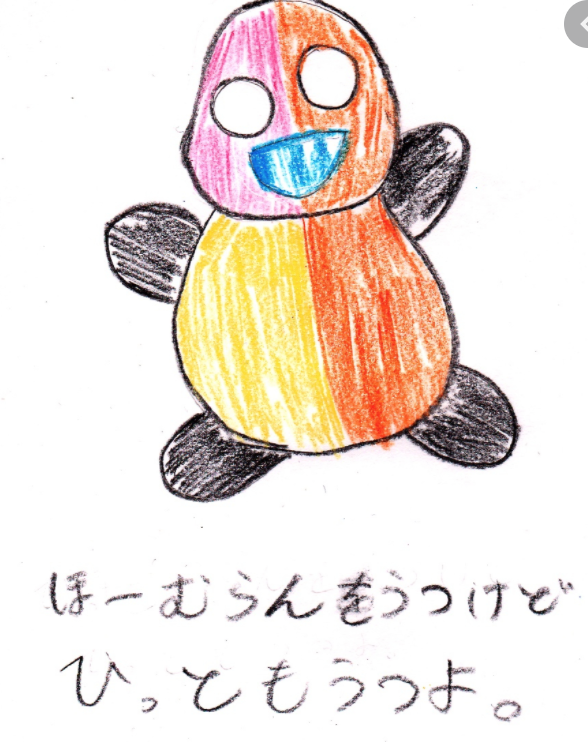 ほーむらんをうつけど
ひっともうつよ。